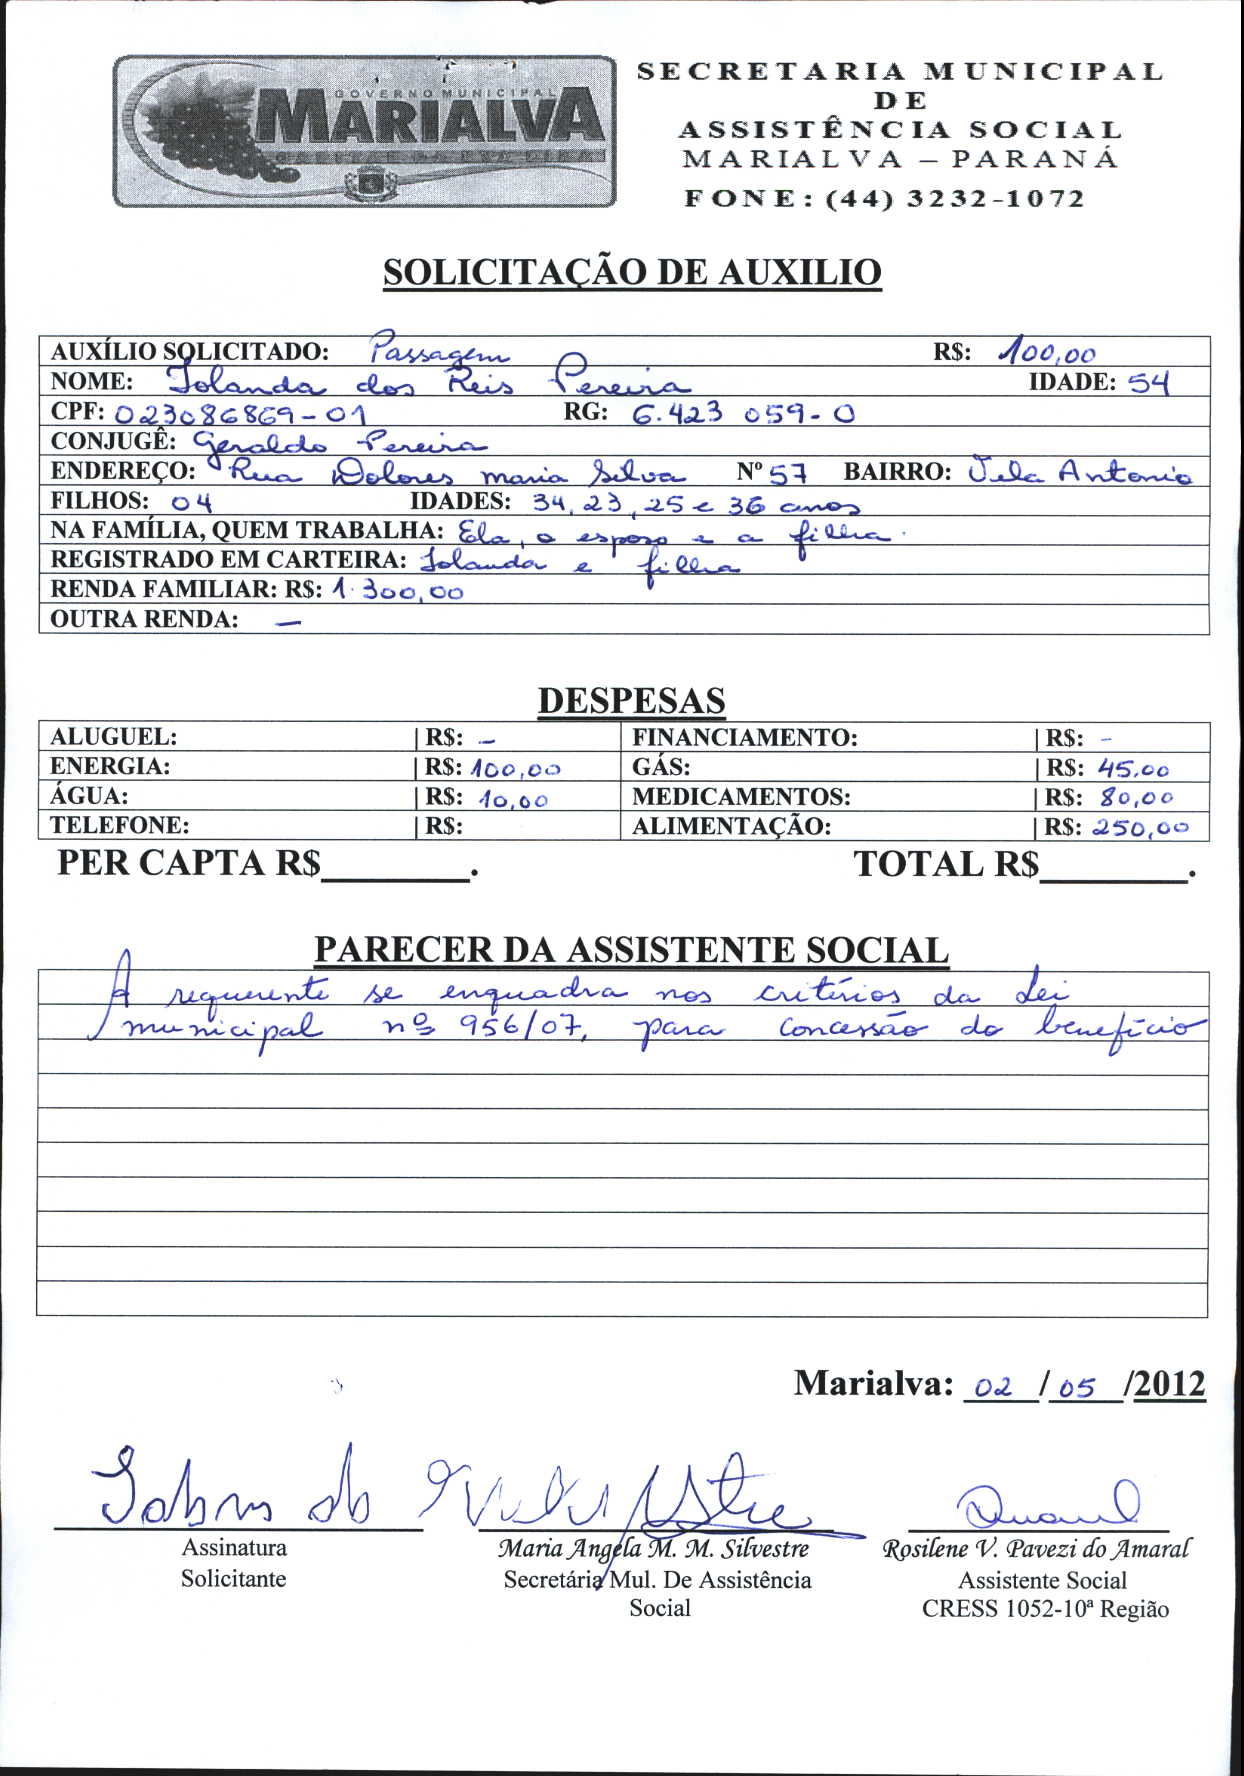 GOVERNO MUNICIPAL
MARIALVA
SECRETARIA MUNICIPAL
DE
ASSISTÊNCIA SOCIAL
MARIALVA – PARANÁ
FONE: (44) 3232-1072
SOLICITAÇÃO DE AUXILIO
AUXÍLIO SOLICITADO: Passagem R$: 100,00
NOME: Iolanda dos Reis Pereira IDADE: 54
CPF: 023086869-01 RG: 6.423 059-0
CONJUGÊ: Geraldo Pereira
ENDEREÇO: Rua Dolores maria Silva Nº 57 BAIRRO: Vila Antonio
FILHOS: 04 IDADES: 34, 23, 25 e 36 anos
NA FAMÍLIA, QUEM TRABALHA: Ela, o esposo e a filha.
REGISTRADO EM CARTEIRA: Iolanda e filha
RENDA FAMILIAR: R$: 1.300,00
OUTRA RENDA: —
DESPESAS
ALUGUEL: | R$: – FINANCIAMENTO: | R$: -
ENERGIA: | R$: 100,00 GÁS: | R$: 45,00
ÁGUA: | R$: 10,00 MEDICAMENTOS: | R$: 80,00
TELEFONE: | R$: ALIMENTAÇÃO: | R$: 250,00
PER CAPTA R$________. TOTAL R$________.
PARECER DA ASSISTENTE SOCIAL
A requerente se enquadra nos critérios da Lei
municipal nº 956/07, para concessão do benefício
Marialva: 02 / 05 /2012
Assinatura Maria Angela M. M. Silvestre Rosilene V. Pavezi do Amaral
Solicitante Secretária Mul. De Assistência Assistente Social
Social CRESS 1052-10ª Região